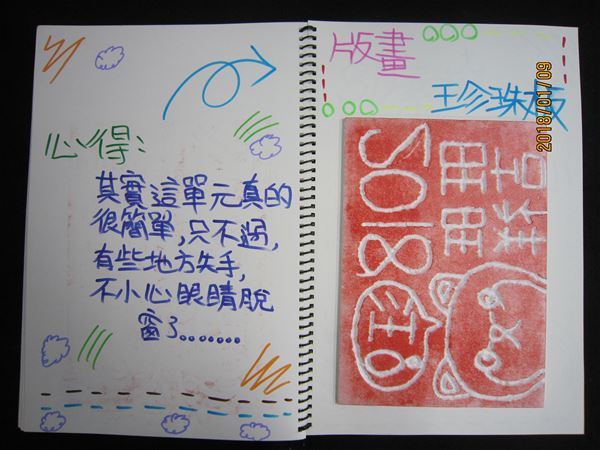 心得:
其實這單元真的
很簡單,只不過,
有些地方失手,
不小心眼睛脫
窗了.......
版畫
珍珠板
2018/01/09
2018
旺!